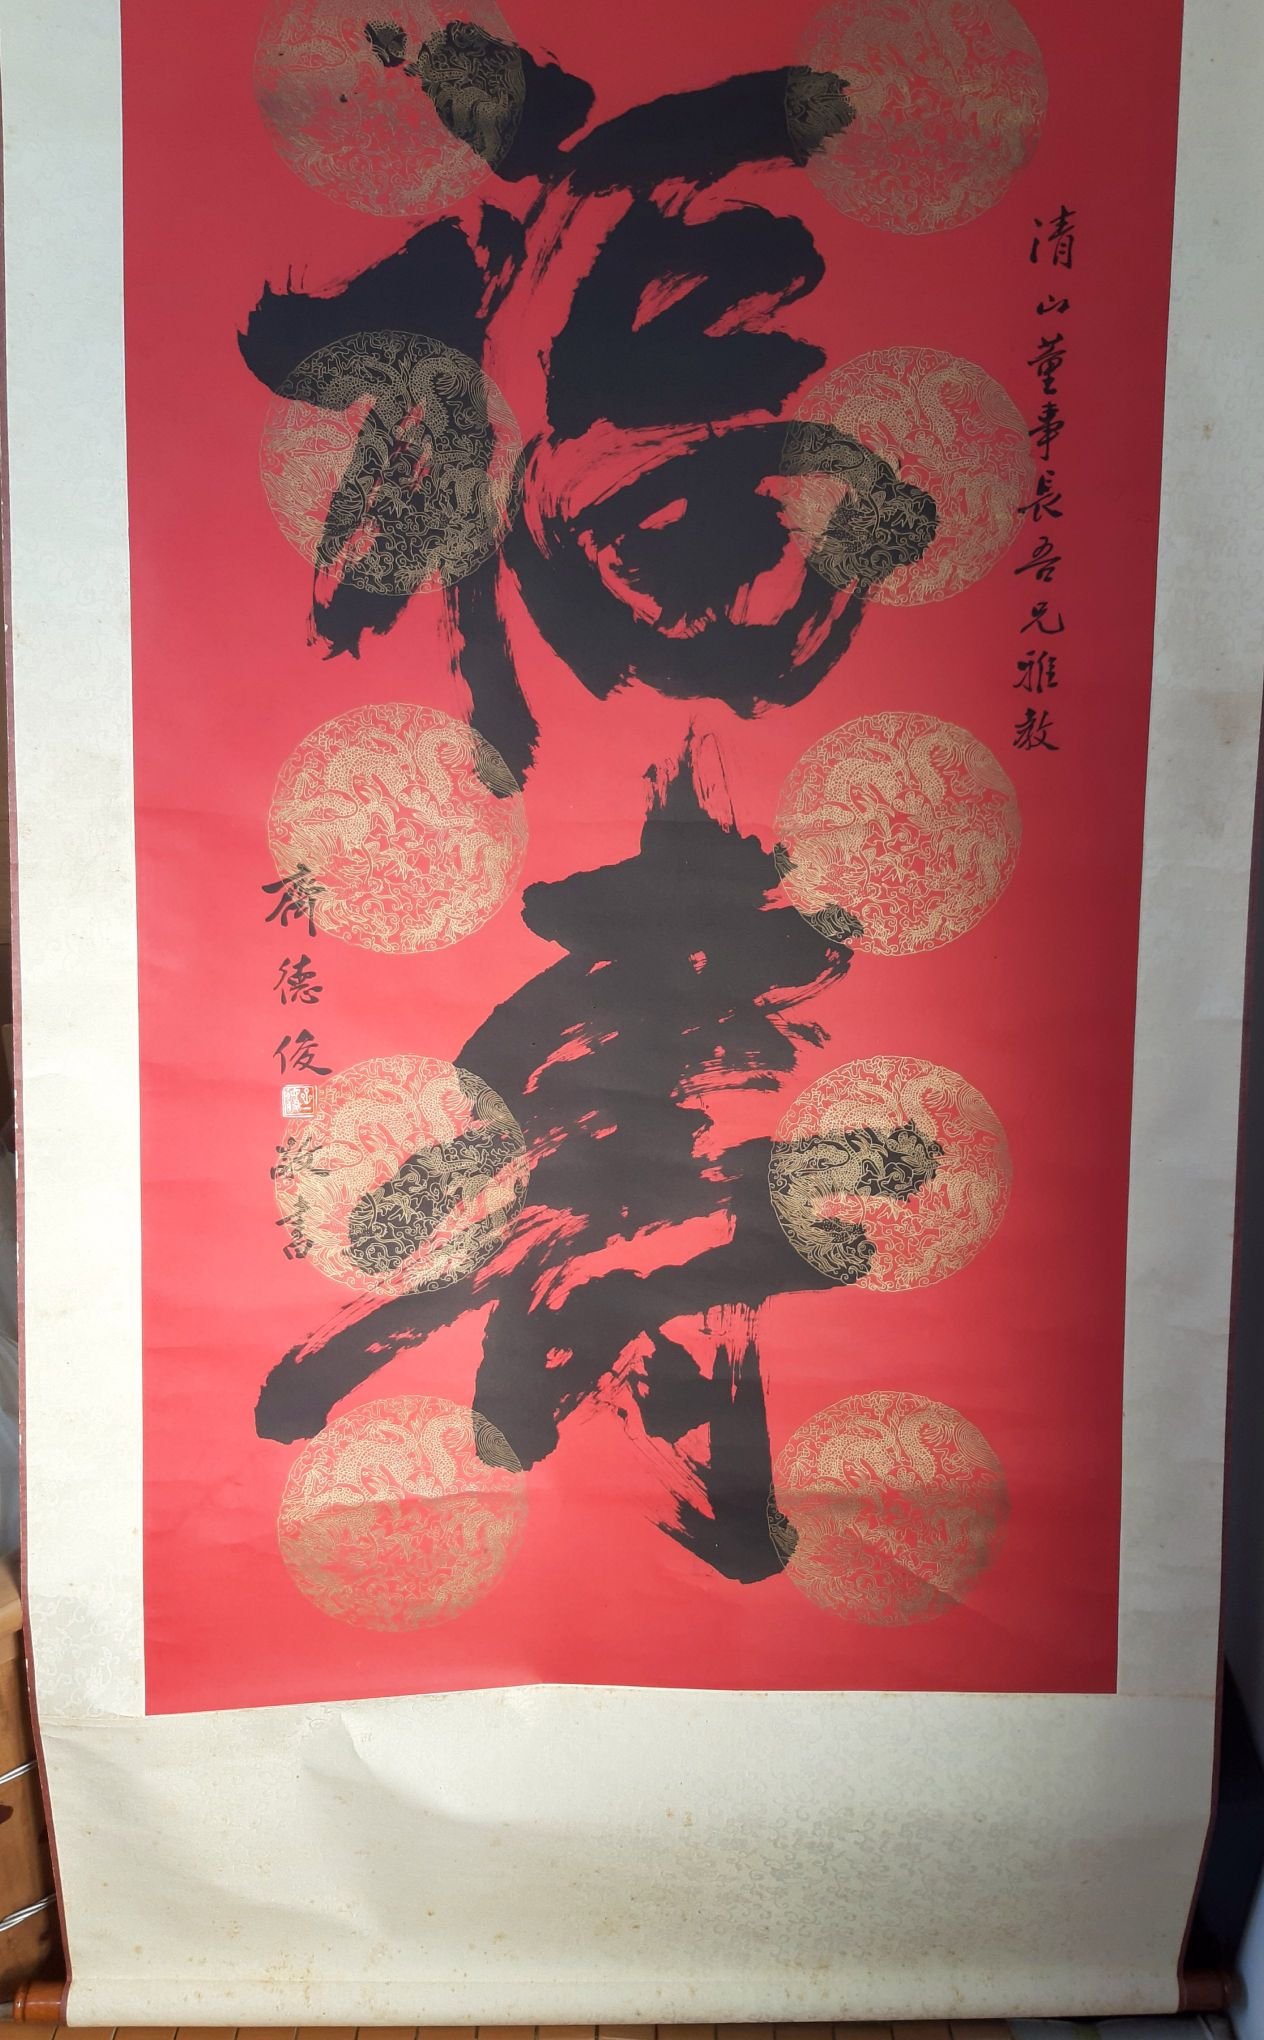 清山董事長吾兄雅教
福壽
齊德俊
敬書